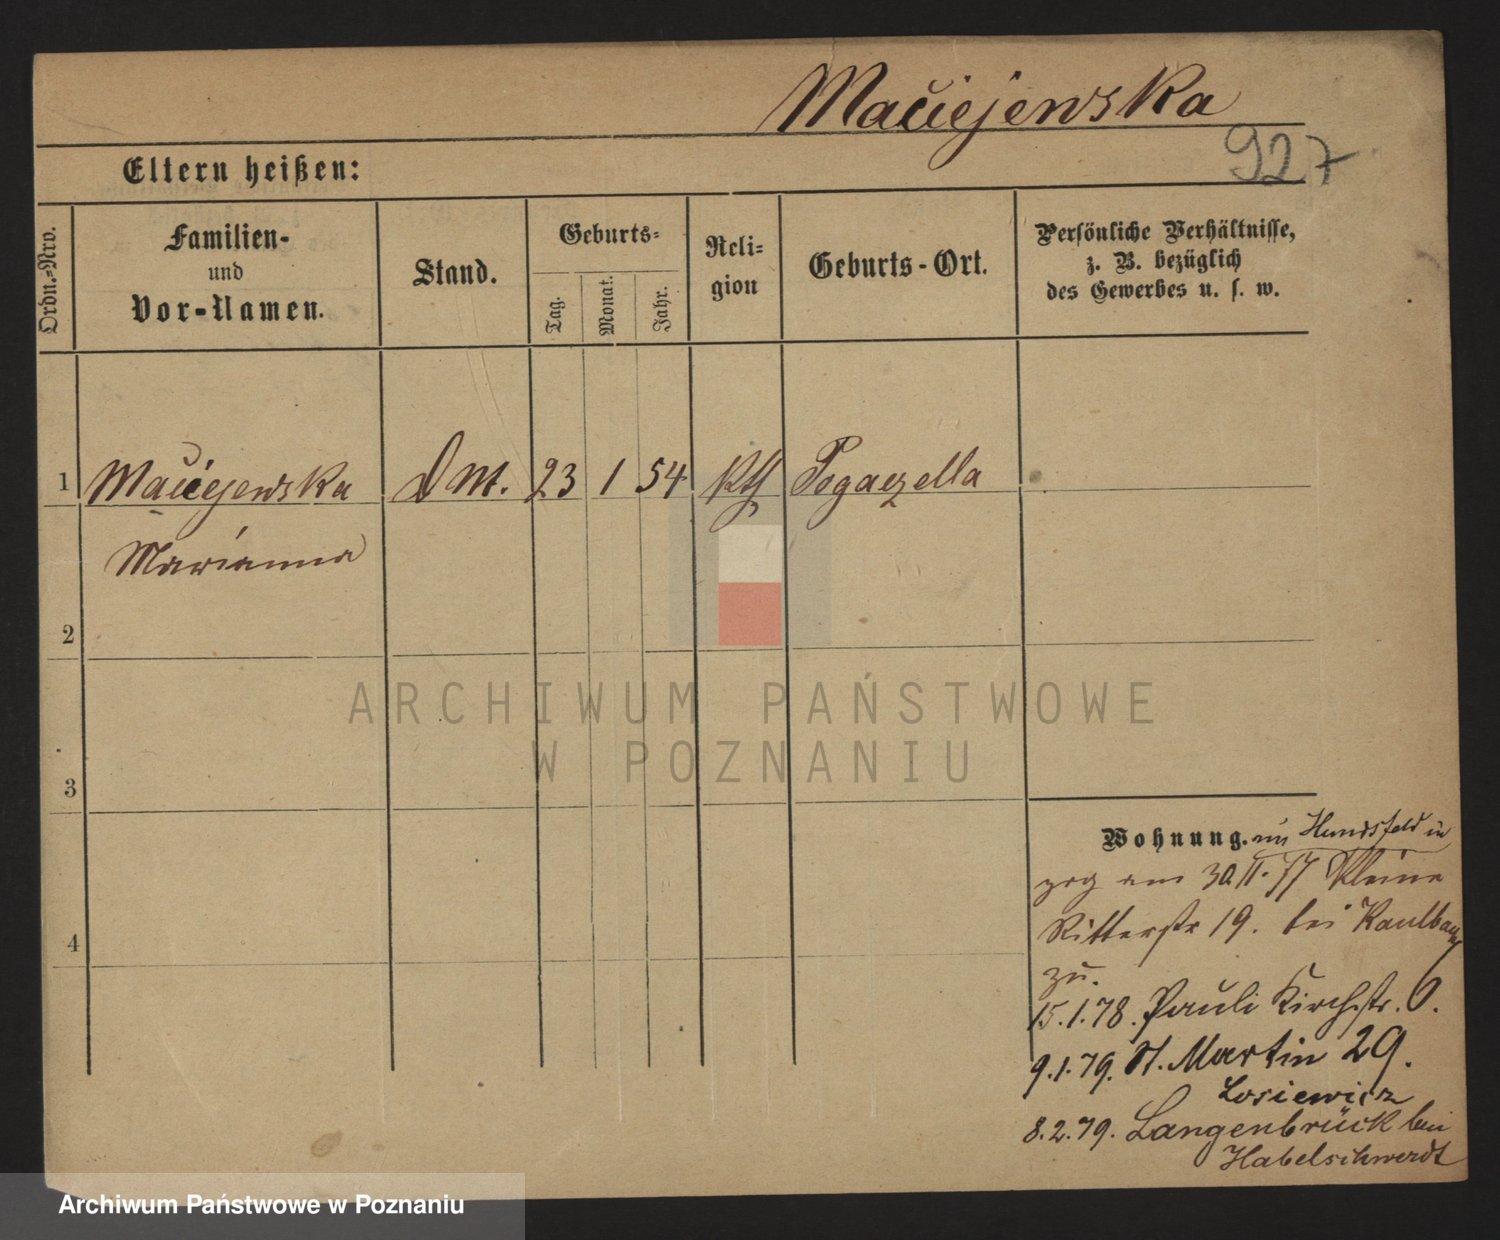 Maciejewska
927
Eltern heißen:
Ordn.-Nro.
Familien-
und
Vor-Namen.
Stand.
Geburts-
Tag.
Monat.
Jahr.
Reli-
gion
Geburts-Ort.
Persönliche Verhältnisse,
z. B. bezüglich
des Gewerbes u. s. w.
1 Maciejewska DM. 23 1 54 Kth Pogaczella
Marianna
2
3
4
ARCHIWUM PAŃSTWOWE
W POZNANIU
Wohnung. Hundsfeld in
zog am 30 11. 77 Kleine
Ritterstr 19. bei Kaulbaum
zu.
15.1.78. Pauli Kirchstr. 6.
9.1.79. St. Martin 29.
Losiewicz
8.2.79. Langenbrück bei
Habelschwerdt
Archiwum Państwowe w Poznaniu